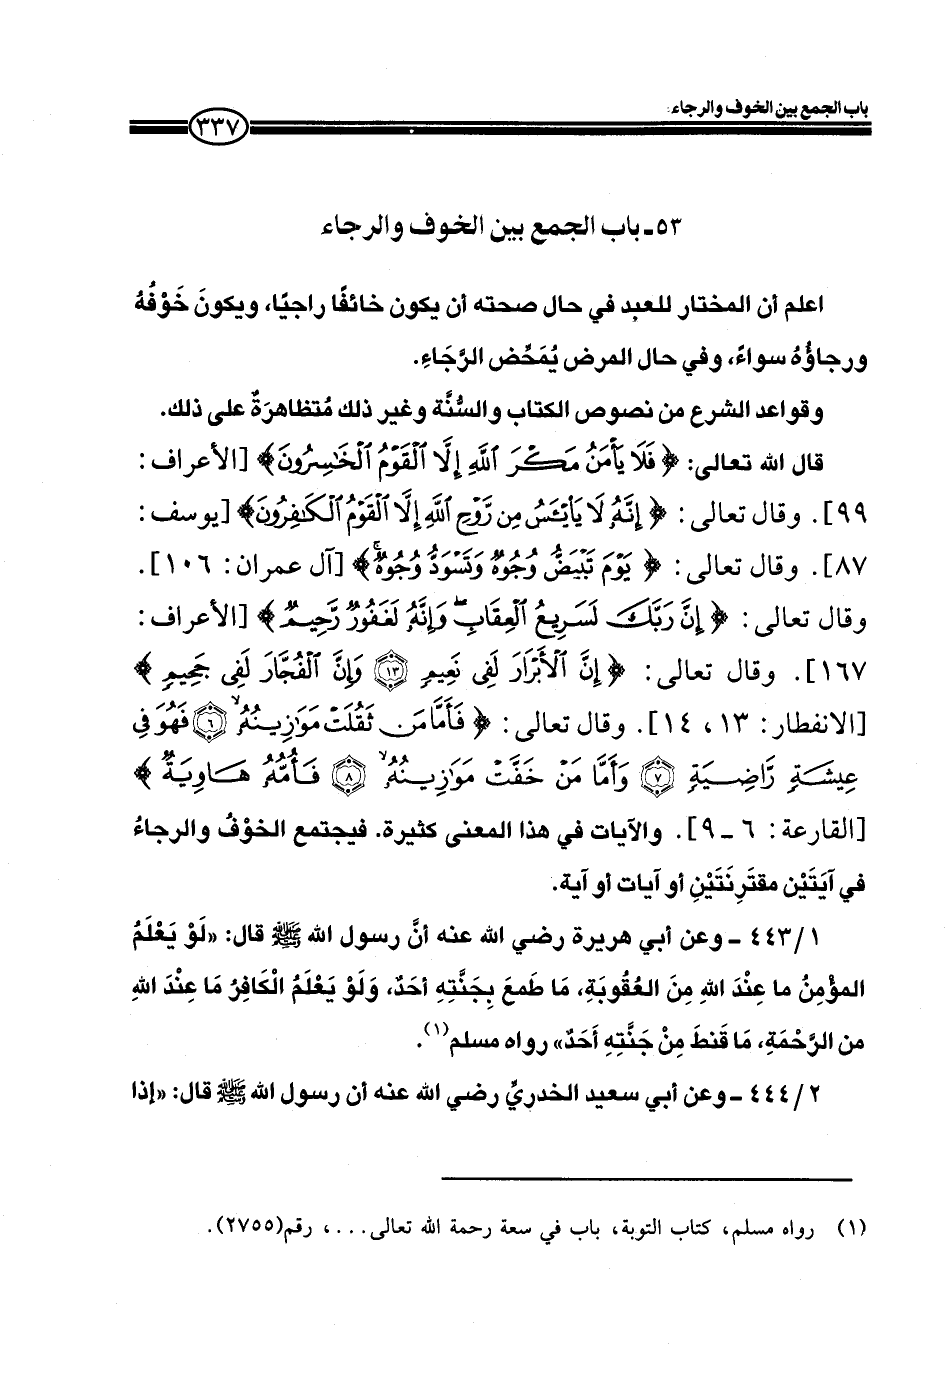 باب الجمع بين الخوف والرجاء
٣٣٧
٥٣ـ باب الجمع بين الخوف والرجاء
اعلم أن المختار للعبد في حال صحته أن يكون خائفًا راجيًا، ويكونَ خَوْفُهُ
ورجاؤُهُ سواءً، وفي حال المرض يُمَحِّض الرَّجَاءِ.
وقواعد الشرع من نصوص الكتاب والسُّنَّة وغير ذلك مُتظاهرَةٌ على ذلك.
قال الله تعالى: ﴿فَلَا يَأْمَنُ مَكْرَ ٱللَّهِ إِلَّا ٱلْقَوْمُ ٱلْخَٰسِرُونَ﴾ [الأعراف:
٩٩]. وقال تعالى: ﴿إِنَّهُ لَا يَاْيْـَٔسُ مِن رَّوْحِ ٱللَّهِ إِلَّا ٱلْقَوْمُ ٱلْكَٰفِرُونَ﴾ [يوسف:
٨٧]. وقال تعالى: ﴿يَوْمَ تَبْيَضُّ وُجُوهٌ وَتَسْوَدُّ وُجُوهٌ﴾ [آل عمران: ١٠٦].
وقال تعالى: ﴿إِنَّ رَبَّكَ لَسَرِيعُ ٱلْعِقَابِ وَإِنَّهُۥ لَغَفُورٌ رَّحِيمٌ﴾ [الأعراف:
١٦٧]. وقال تعالى: ﴿إِنَّ ٱلْأَبْرَارَ لَفِى نَعِيمٍ ۝١٣ وَإِنَّ ٱلْفُجَّارَ لَفِى جَحِيمٍ﴾
[الانفطار: ١٣، ١٤]. وقال تعالى: ﴿فَأَمَّا مَن ثَقُلَتْ مَوَٰزِينُهُۥ ۝٦ فَهُوَ فِى
عِيشَةٍ رَّاضِيَةٍ ۝٧ وَأَمَّا مَنْ خَفَّتْ مَوَٰزِينُهُۥ ۝٨ فَأُمُّهُۥ هَاوِيَةٌ﴾
[القارعة: ٦ ـ ٩]. والآيات في هذا المعنى كثيرة. فيجتمع الخوْفُ والرجاءُ
في آيَتَيْن مقتَرِنَتَيْنِ أو آيات أو آية.
٤٤٣/١ ـ وعن أبي هريرة رضي الله عنه أنَّ رسول الله ﷺ قال: «لَوْ يَعْلَمُ
المؤْمِنُ ما عِنْدَ اللهِ مِنَ العُقُوبَةِ، مَا طَمِعَ بِجَنَّتِهِ أحَدٌ، وَلَوْ يَعْلَمُ الْكَافِرُ مَا عِنْدَ اللهِ
من الرَّحْمَةِ، مَا قَنطَ مِنْ جَنَّتِهِ أَحَدٌ» رواه مسلم(١).
٤٤٤/٢ ـ وعن أبي سعيد الخدريِّ رضي الله عنه أن رسول الله ﷺ قال: «إذا
(١) رواه مسلم، كتاب التوبة، باب في سعة رحمة الله تعالى...، رقم(٢٧٥٥).